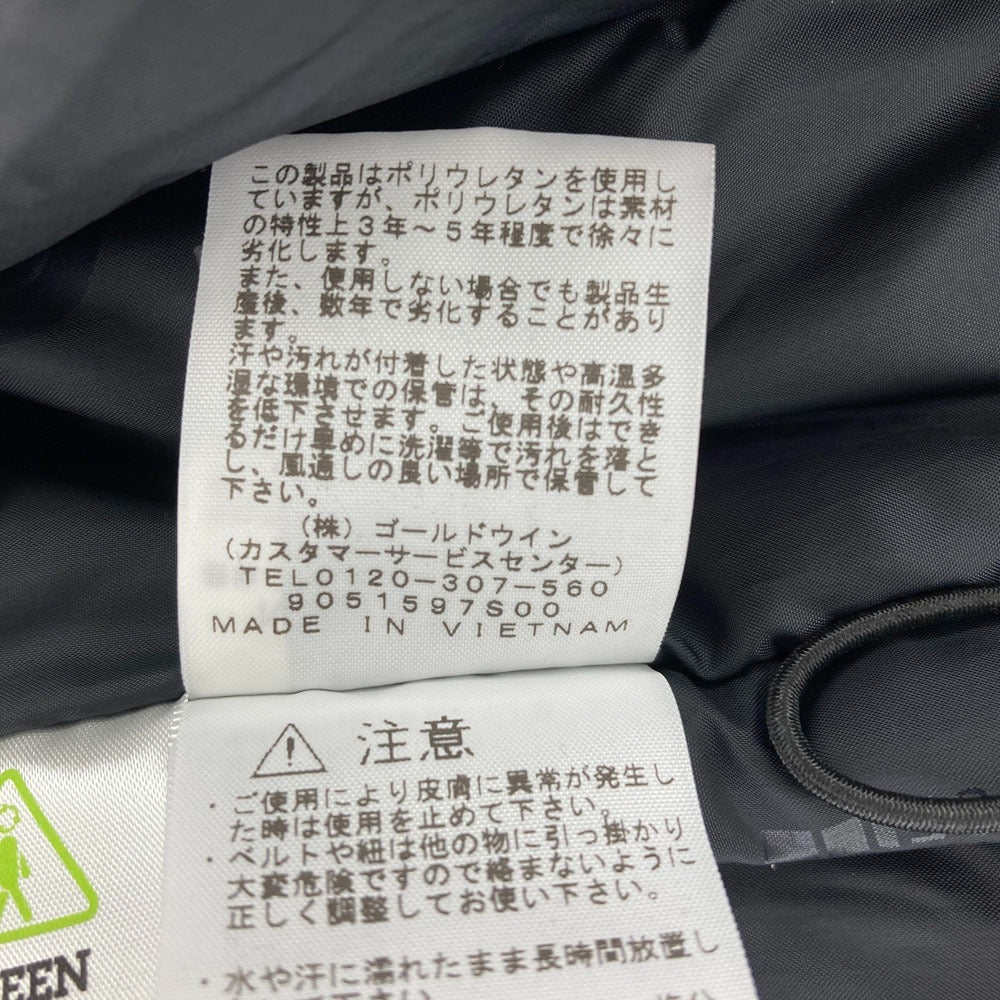 この製品はポリウレタンを使用し
ていますが、ポリウレタンは素材
の特性上3年～5年程度で徐々に
劣化します。
また、使用しない場合でも製品生
産後、数年で劣化することがあり
ます。
汗や汚れが付着した状態や高温多
湿な環境での保管は、その耐久性
を低下させます。ご使用後はでき
るだけ早めに洗濯等で汚れを落と
し、風通しの良い場所で保管して
下さい。
(株)ゴールドウイン
(カスタマーサービスセンター)
TEL0120-307-560
9051597S00
MADE IN VIETNAM
注意
・ご使用により皮膚に異常が発生し
た時は使用を止めて下さい。
・ベルトや紐は他の物に引っ掛かり
大変危険ですので絡まないように
正しく調整してお使い下さい。
・水や汗に濡れたまま長時間放置し
EEN